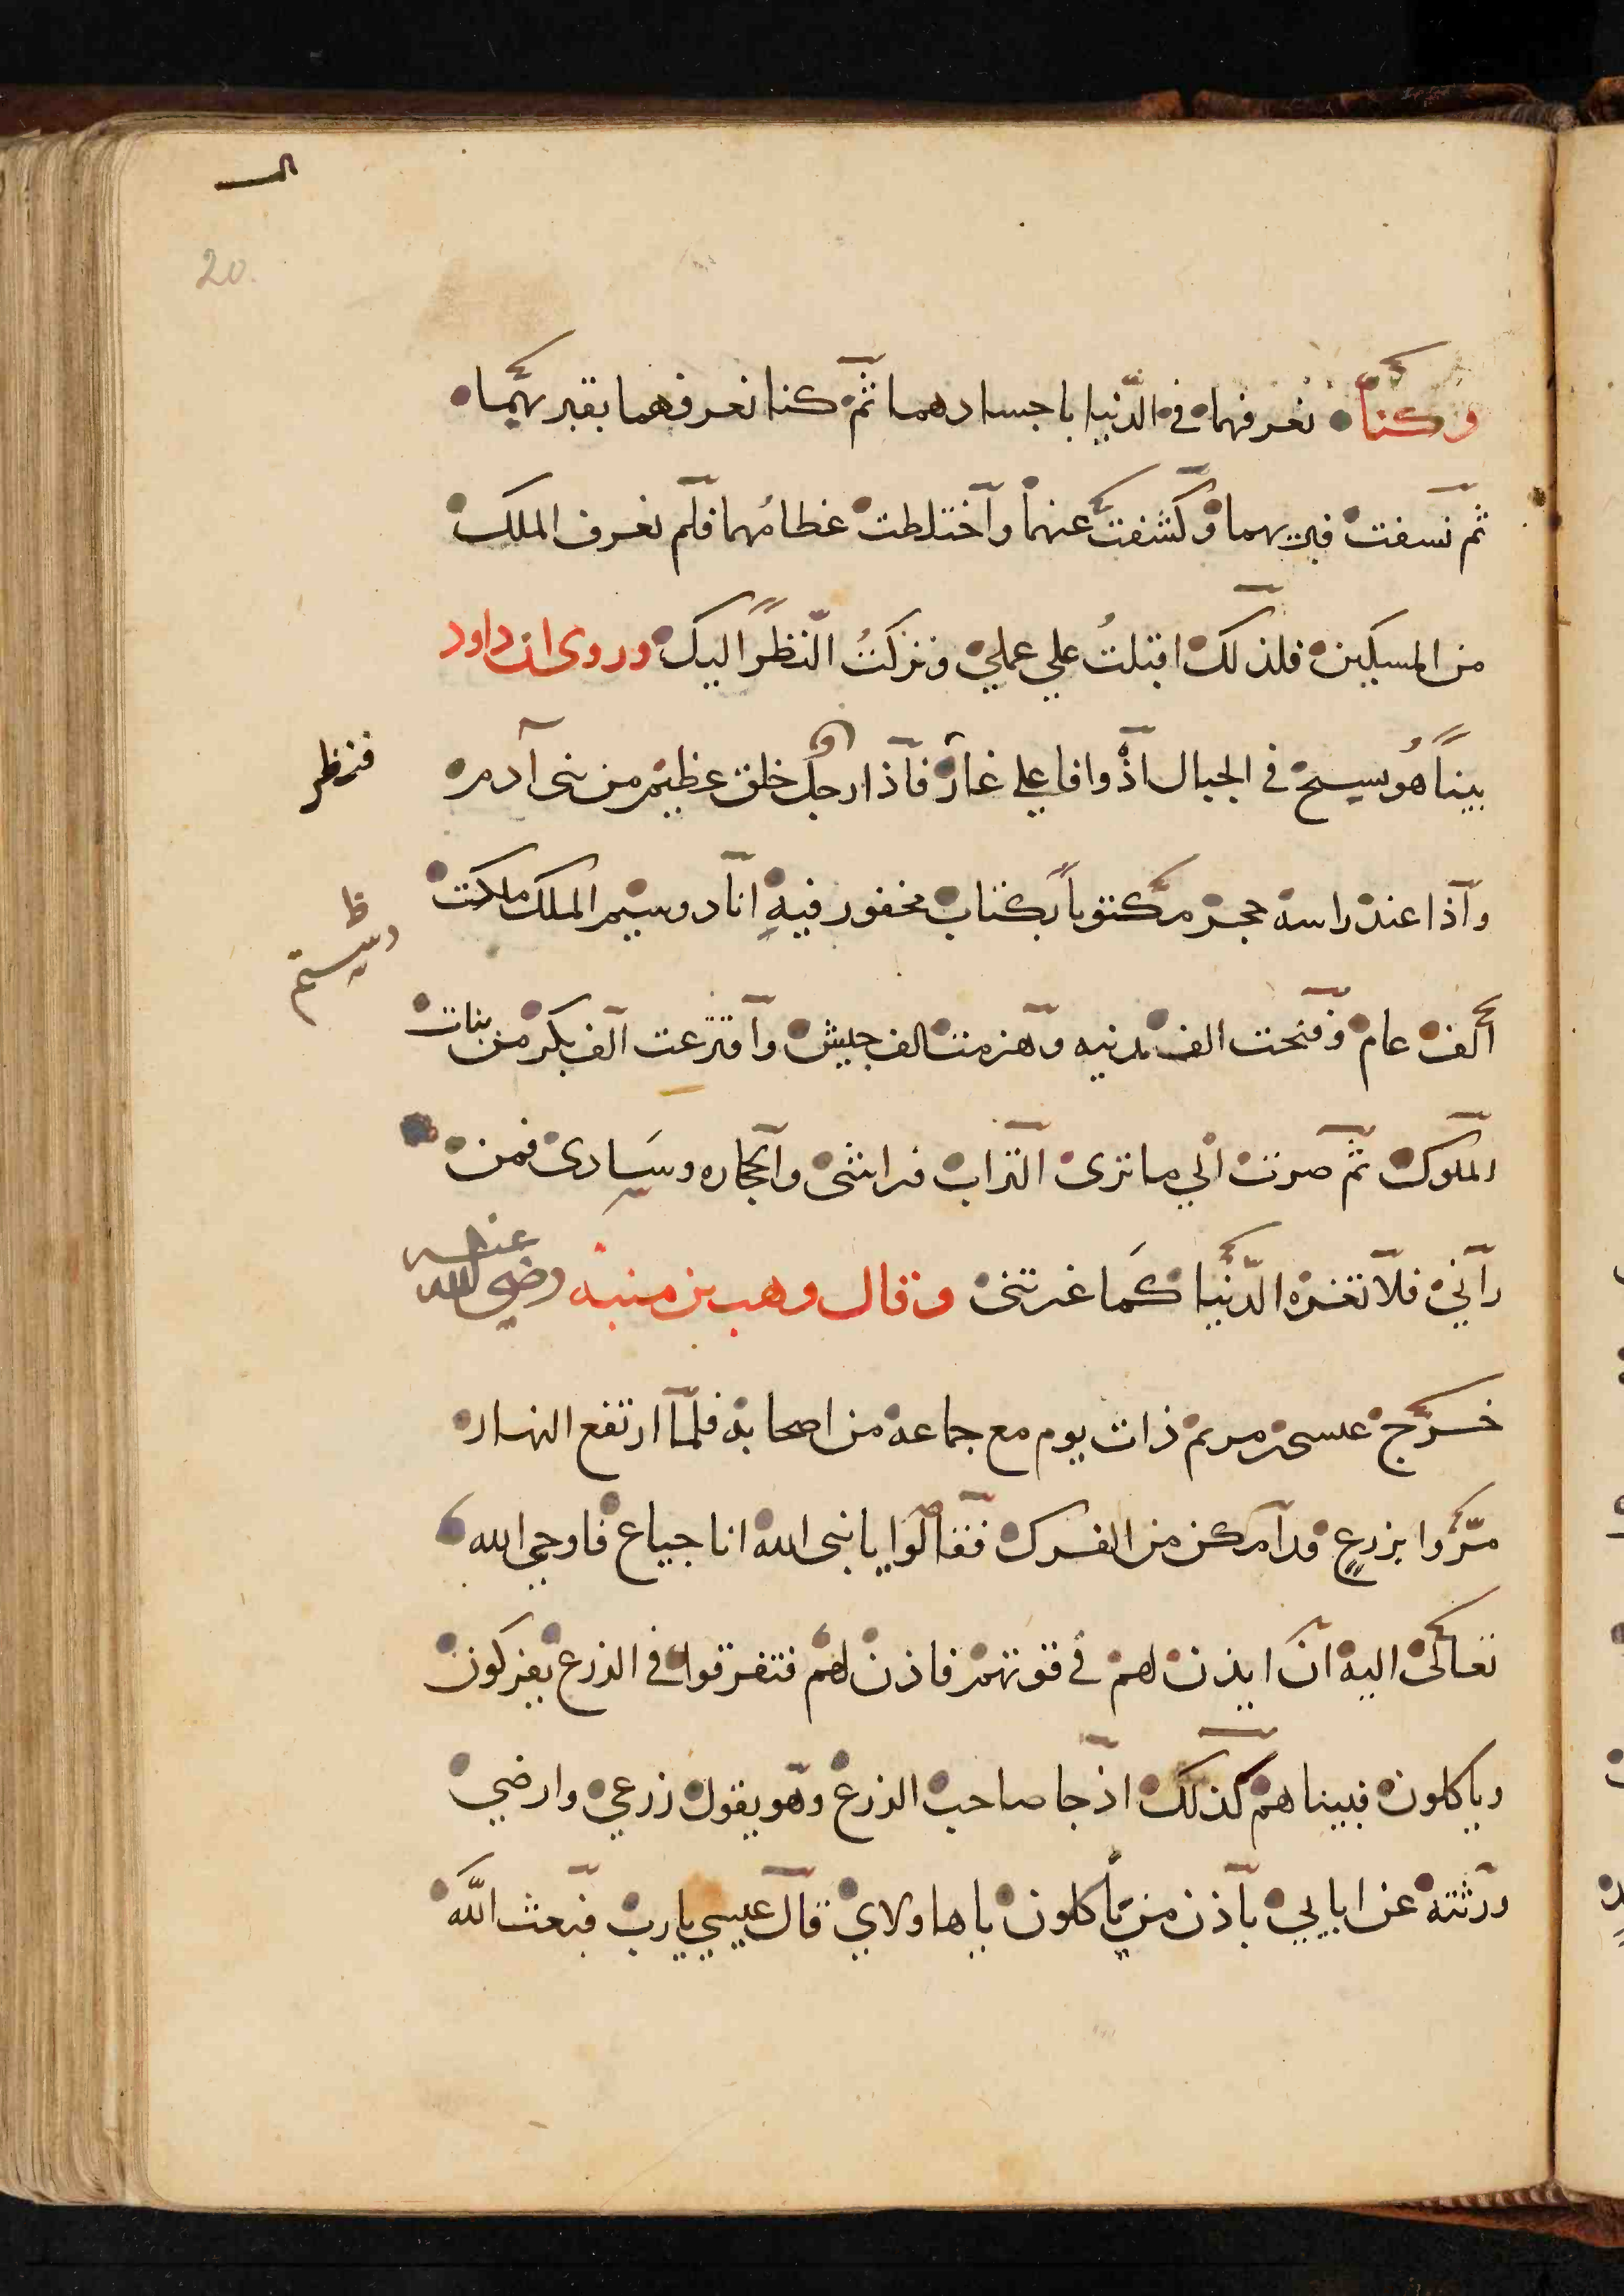 20.
وكنا نعرفهما في الدنيا باجسادهما ثم كنا نعرفهما بقبريهما
ثم نسفت قبريهما وكشفت عنهما وآختلطت عظامهما فلم نعرف الملك
من المسكين فلذلك اقبلتُ علي عملي وتركتُ النظر اليك وروى ان داود
بينا هو يسيح في الجبال اذ وافا علي غار فاذا رجل خلق عظيم من بنى آدم
فنظر
وآذا عند راسه حجر مكتوبا بكتاب محفور فيه انا دوسيم الملك ملكت
ظ
دسيتم
ألف عام وفتحت الف مدنيه وهزمت الف جيش وآفترعت آلف بكر من بنات
الملوك ثم صرت الي ما ترى التراب فراشى وآلحجاره وسادى فمن
رآني فلا تغره الدنيا كما غرتنى وقال وهب بن منبه رضي الله عنه
خرج عيسى بن مريم ذات يوم مع جماعه من اصحابه فلما ارتفع النهار
مرّوا بزرعٍ قد آمكن من الفرك فقالوا يا نبى الله انا جياع فاوحي الله
تعالى اليه ان ايذن لهم في قوتهم فاذن لهم فتفرقوا في الزرع يفركون
وياكلون فبينا هم كذلك اذ جا صاحب الزرع وهو يقول زرعي وارضي
ورثته عن ابايي بآذن من يأكلون يا هاولاي قال عيسي يا رب فبعث الله